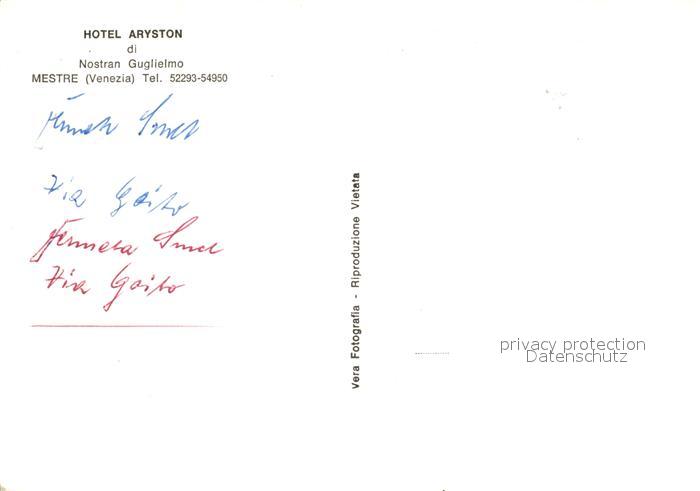 HOTEL ARYSTON
di
Nostran Guglielmo
MESTRE (Venezia) Tel. 52293-54950
Via Goito
Fermata
Via Goito
Vera Fotografia - Riproduzione Vietata
privacy protection
Datenschutz